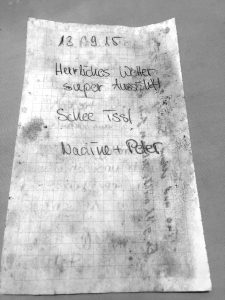 13.09.15
Herrliches Wetter
super Aussicht!
Schee Iss!
Nadine + Peter